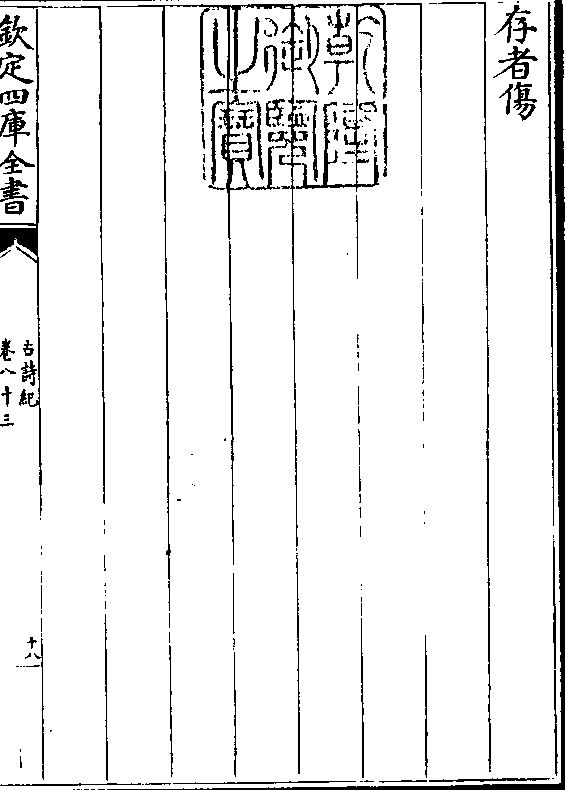 存者傷
乾隆
御覽
之寶
欽定四庫全書
古詩紀
卷八十三
十八